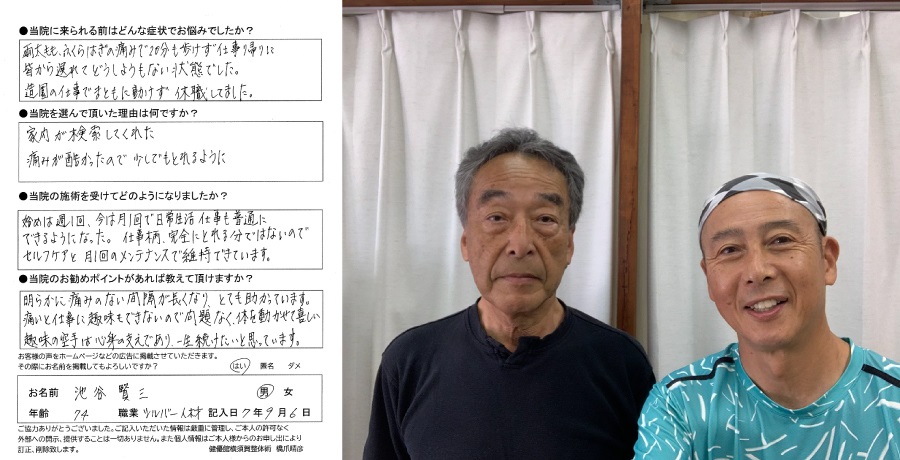 ●当院に来られる前はどんな症状でお悩みでしたか?
両太もも、ふくらはぎの痛みで20分も歩けず仕事帰りに
皆から遅れてどうしようもない状態でした。
造園の仕事でまともに動けず休職してました。
●当院を選んで頂いた理由は何ですか?
家内が検索してくれた
痛みが酷かったので少しでもとれるように
●当院の施術を受けてどのようになりましたか?
始めは週1回、今は月1回で日常生活仕事も普通に
できるようになった。仕事柄、完全にとれる分ではないので
セルフケアと月1回のメンテナンスで維持できています。
●当院のお勧めポイントがあれば教えて頂けますか?
明らかに痛みのない間隔が長くなり、とても助かっています。
痛いと仕事に趣味もできないので問題なく、体を動かせて嬉しい
趣味の空手は心身の支えであり、一生続けたいと思っています。
お客様の声をホームページなどの広告に掲載させていただきます。
その際にお名前を掲載してもよろしいですか? はい 匿名 ダメ
お名前 池谷 賢三 男 女
年齢 74 職業 シルバー人材 記入日 7年9月6日
ご協力ありがとうございました。ご記入いただいた情報は厳重に管理し、ご本人の許可なく
外部への開示、提供することは一切ありません。また個人情報はご本人様からのお申し出により
訂正、削除致します。 健優館横須賀整体術 橋爪晴彦